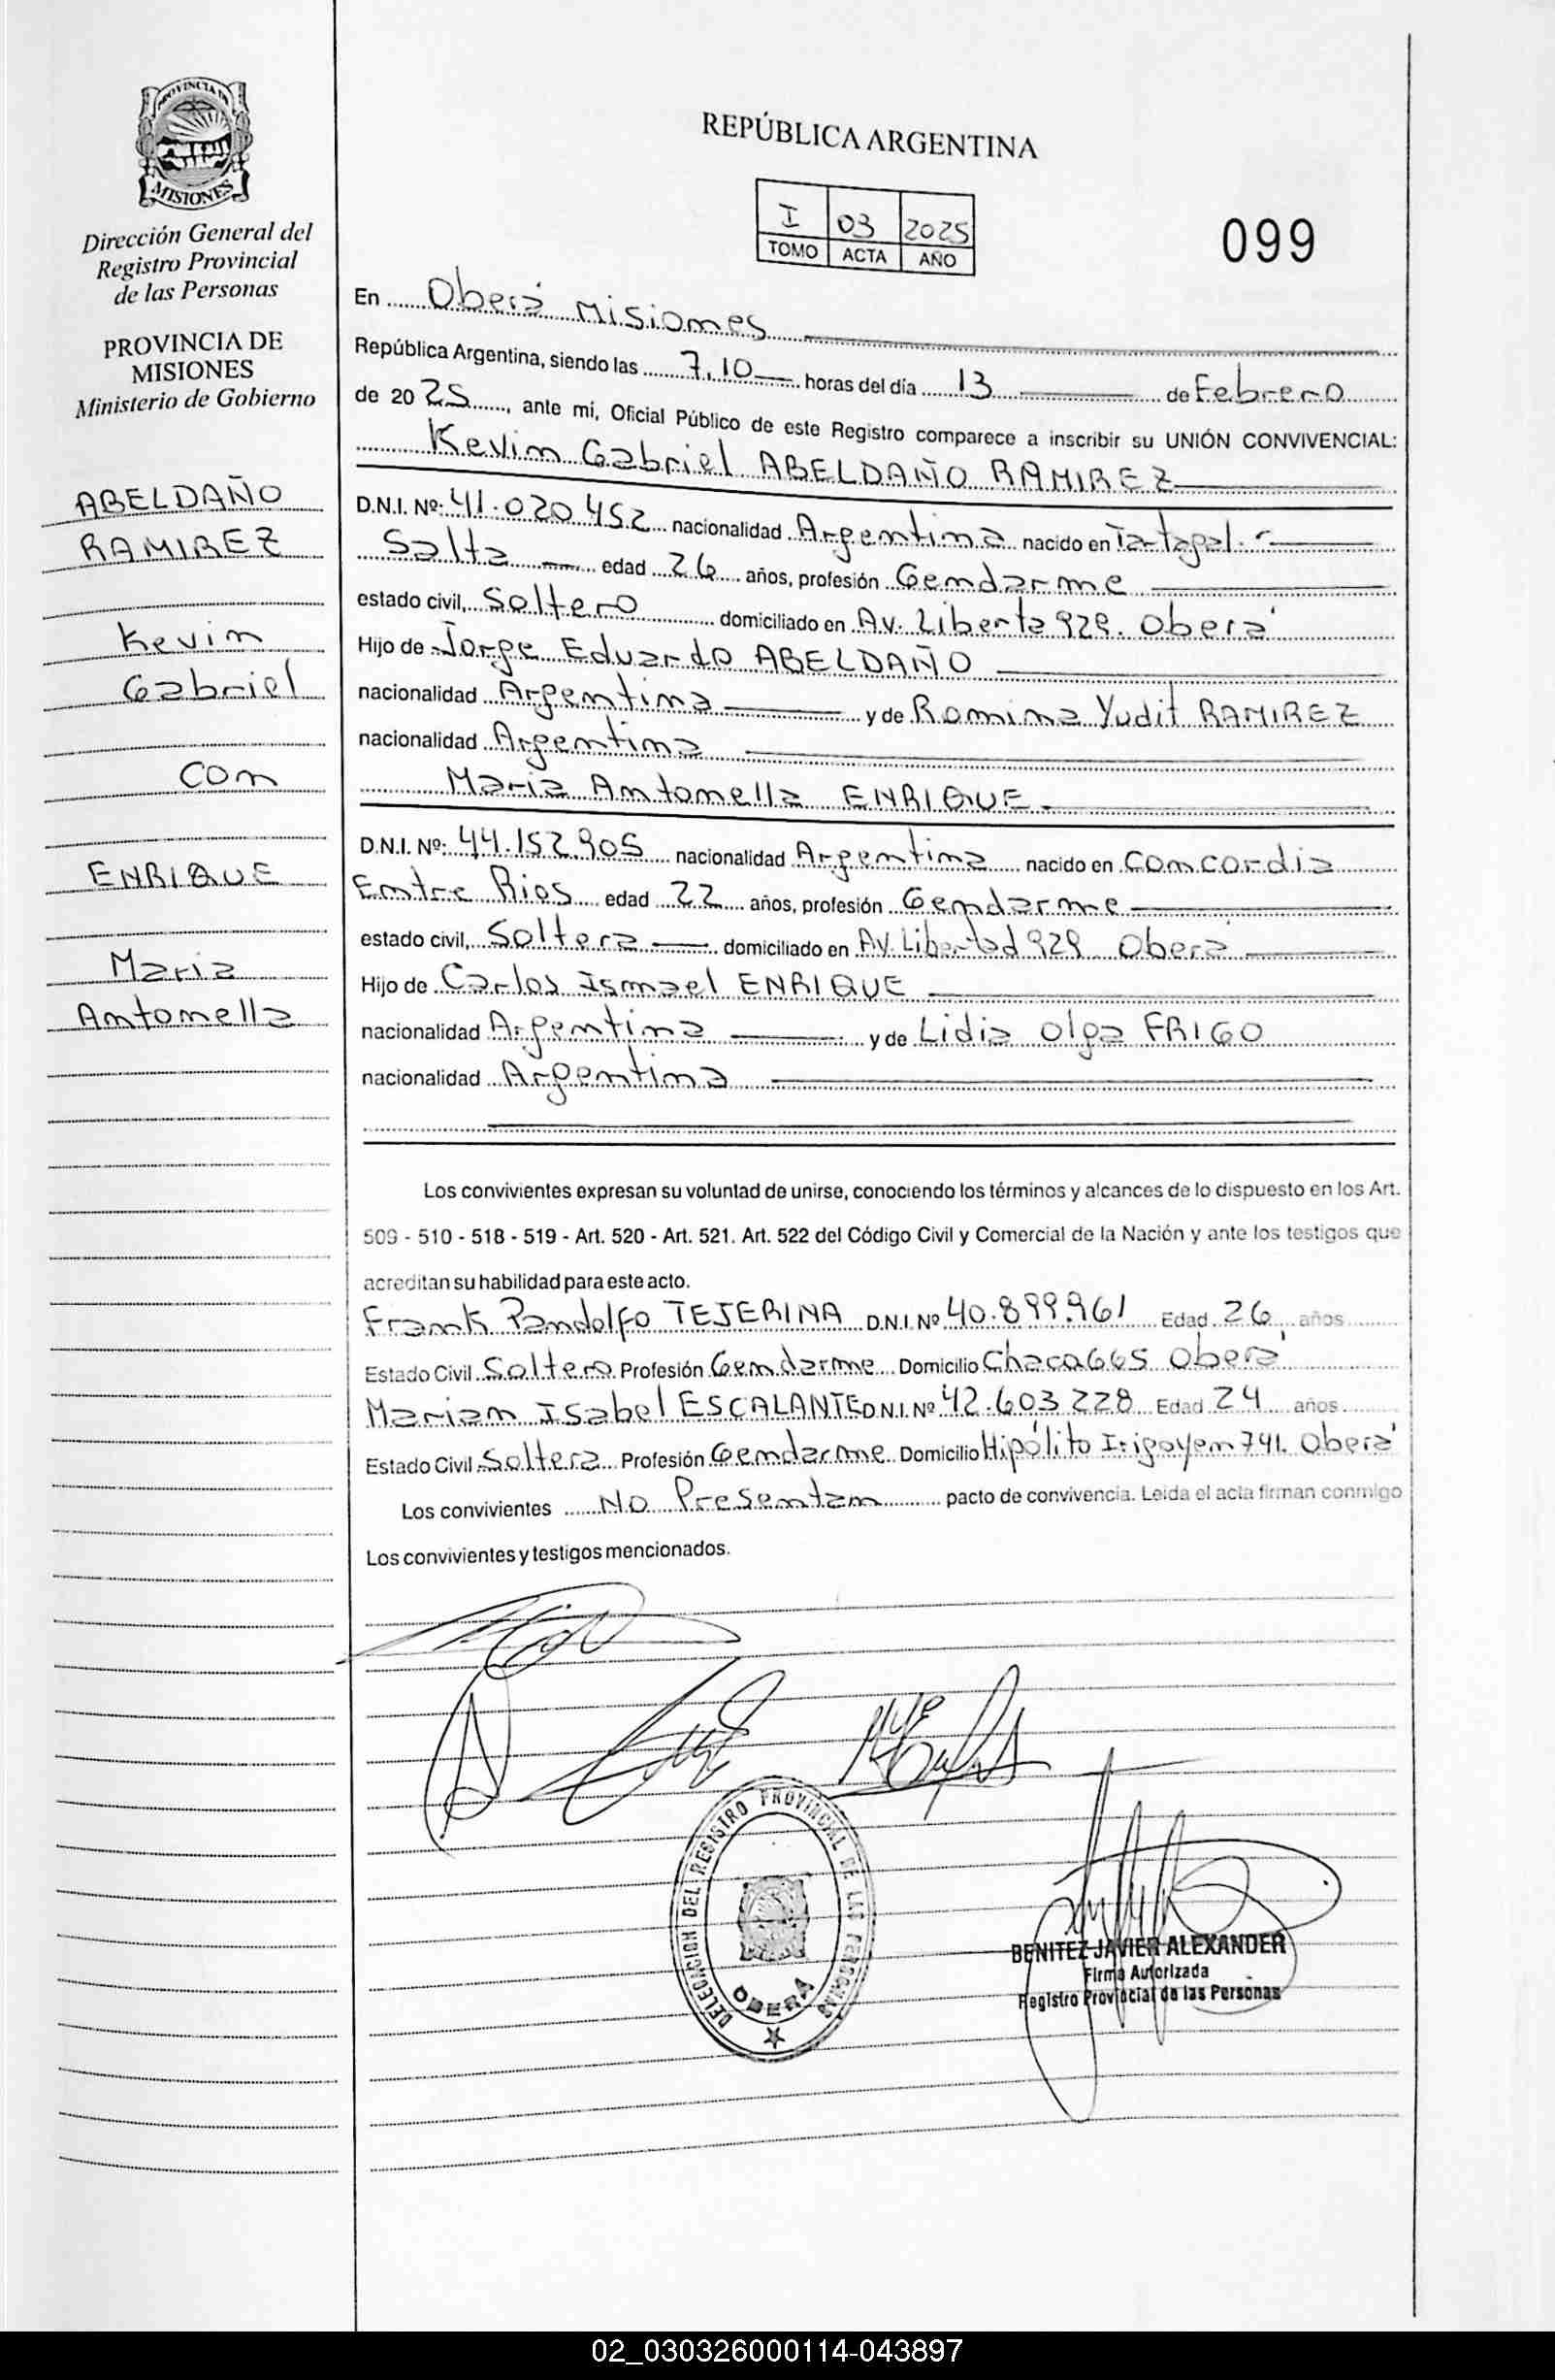 PROVINCIA DE
MISIONES
Dirección General del
Registro Provincial
de las Personas
PROVINCIA DE
MISIONES
Ministerio de Gobierno
ABELDAÑO
RAMIREZ
Kevin
Gabriel
con
ENRIQUE
Maria
Antonella
REPÚBLICA ARGENTINA
I 03 2025
TOMO ACTA AÑO
099
En Oberá Misiones
República Argentina, siendo las 7,10 horas del día 13 de Febrero
de 2025, ante mí, Oficial Público de este Registro comparece a inscribir su UNIÓN CONVIVENCIAL:
Kevin Gabriel ABELDAÑO RAMIREZ
D.N.I. Nº: 41.020.452 nacionalidad Argentina nacido en Tartagal.
Salta edad 26 años, profesión Gendarme
estado civil, Soltero domiciliado en Av. Liberta 929. Oberá
Hijo de Jorge Eduardo ABELDAÑO
nacionalidad Argentina y de Romina Yudit RAMIREZ
nacionalidad Argentina
Maria Antonella ENRIQUE
D.N.I. Nº: 44.152.905 nacionalidad Argentina nacido en Concordia
Entre Rios edad 22 años, profesión Gendarme
estado civil, Soltera domiciliado en Av. Libertad 929 Oberá
Hijo de Carlos Ismael ENRIQUE
nacionalidad Argentina y de Lidia Olga FRIGO
nacionalidad Argentina
Los convivientes expresan su voluntad de unirse, conociendo los términos y alcances de lo dispuesto en los Art.
509 - 510 - 518 - 519 - Art. 520 - Art. 521. Art. 522 del Código Civil y Comercial de la Nación y ante los testigos que
acreditan su habilidad para este acto.
Frank Pandolfo TEJERINA D.N.I. Nº 40.899.961 Edad 26 años
Estado Civil Soltero Profesión Gendarme Domicilio Chaca 665 Oberá
Mariam Isabel ESCALANTE D.N.I. Nº 42.603.228 Edad 24 años
Estado Civil Soltera Profesión Gendarme Domicilio Hipólito Irigoyen 741. Oberá
Los convivientes No Presentan pacto de convivencia. Leida el acta firman conmigo
Los convivientes y testigos mencionados.
DELEGACION DEL REGISTRO PROVINCIAL DE LAS PERSONAS
OBERA
BENITEZ JAVIER ALEXANDER
Firma Autorizada
Registro Provincial de las Personas
02_030326000114-043897